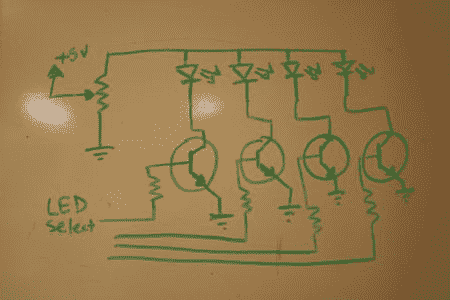 +5V
LED
Select